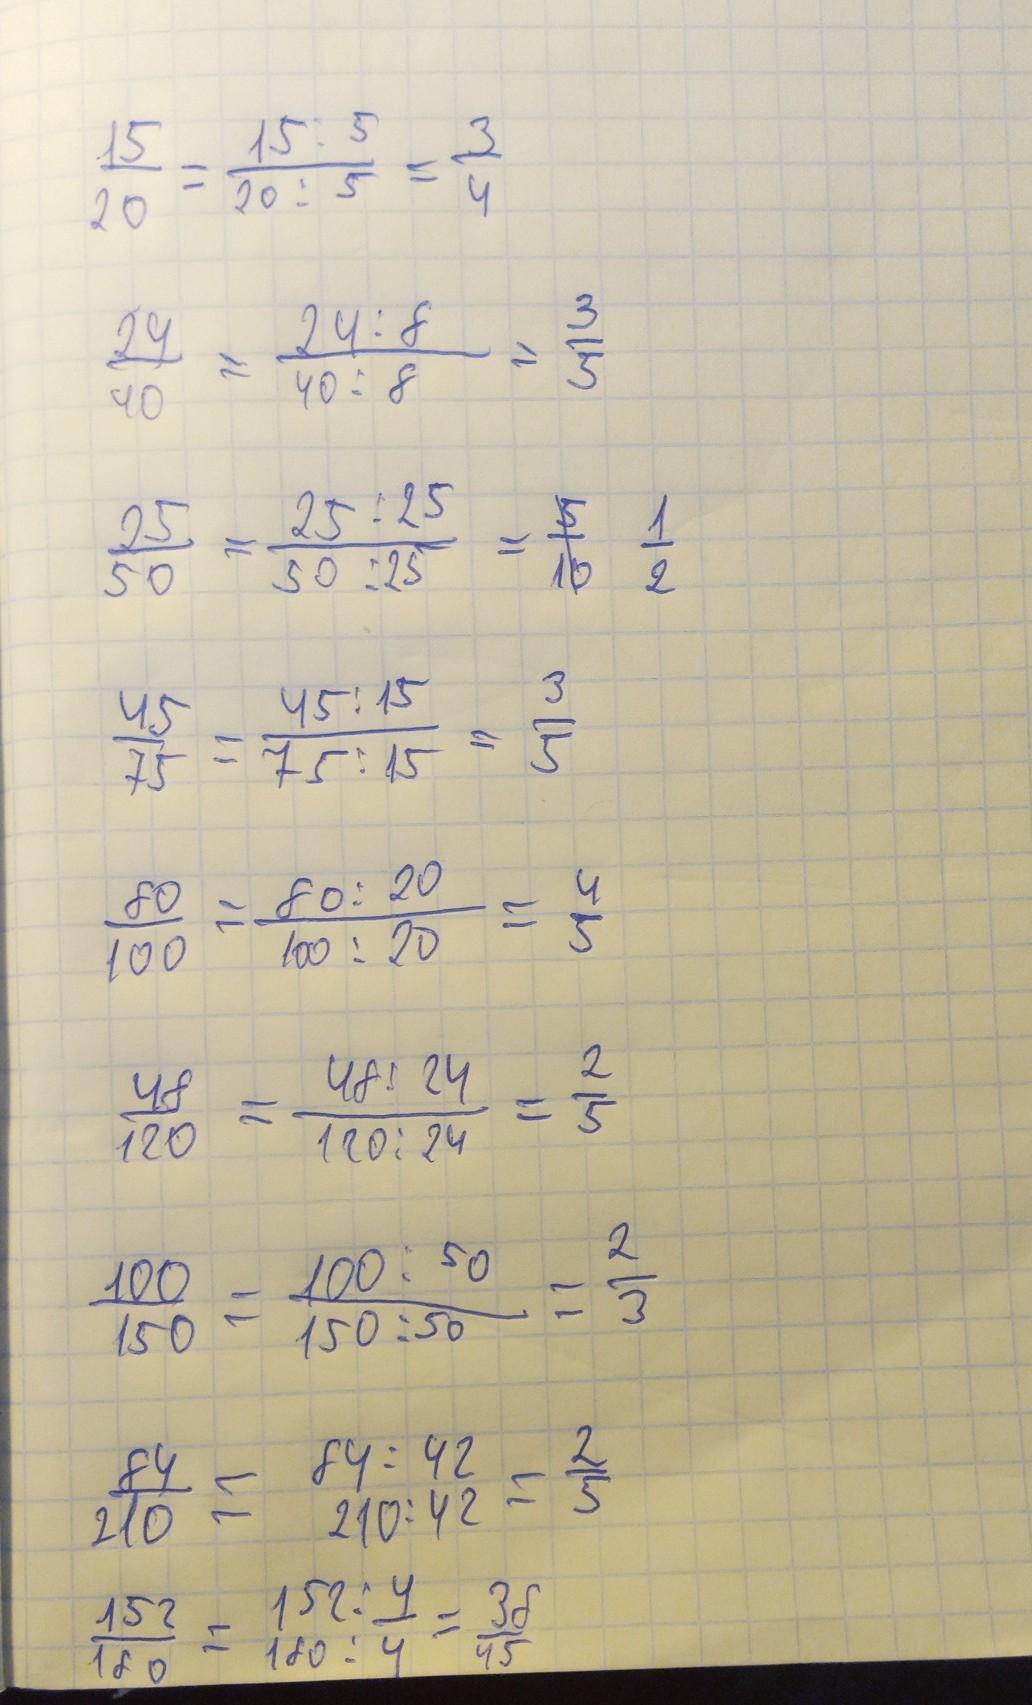 15/20 = 15:5/20:5 = 3/4
24/40 = 24:8/40:8 = 3/5
25/50 = 25:25/50:25 = 5/10 1/2
45/75 = 45:15/75:15 = 3/5
80/100 = 80:20/100:20 = 4/5
48/120 = 48:24/120:24 = 2/5
100/150 = 100:50/150:50 = 2/3
84/210 = 84:42/210:42 = 2/5
152/180 = 152:4/180:4 = 38/45